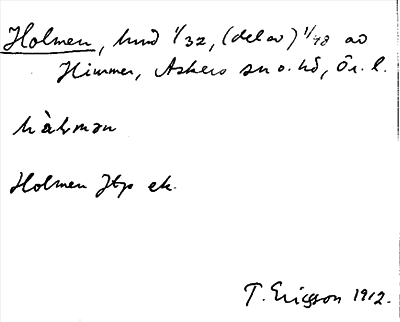 Holmen, hmd 1/32, (del av) 1/48 av
Himmer, Askers sn o. hd, Ör. l.
hòlmən
Holmen Jtp ek.
T. Ericsson 1912.